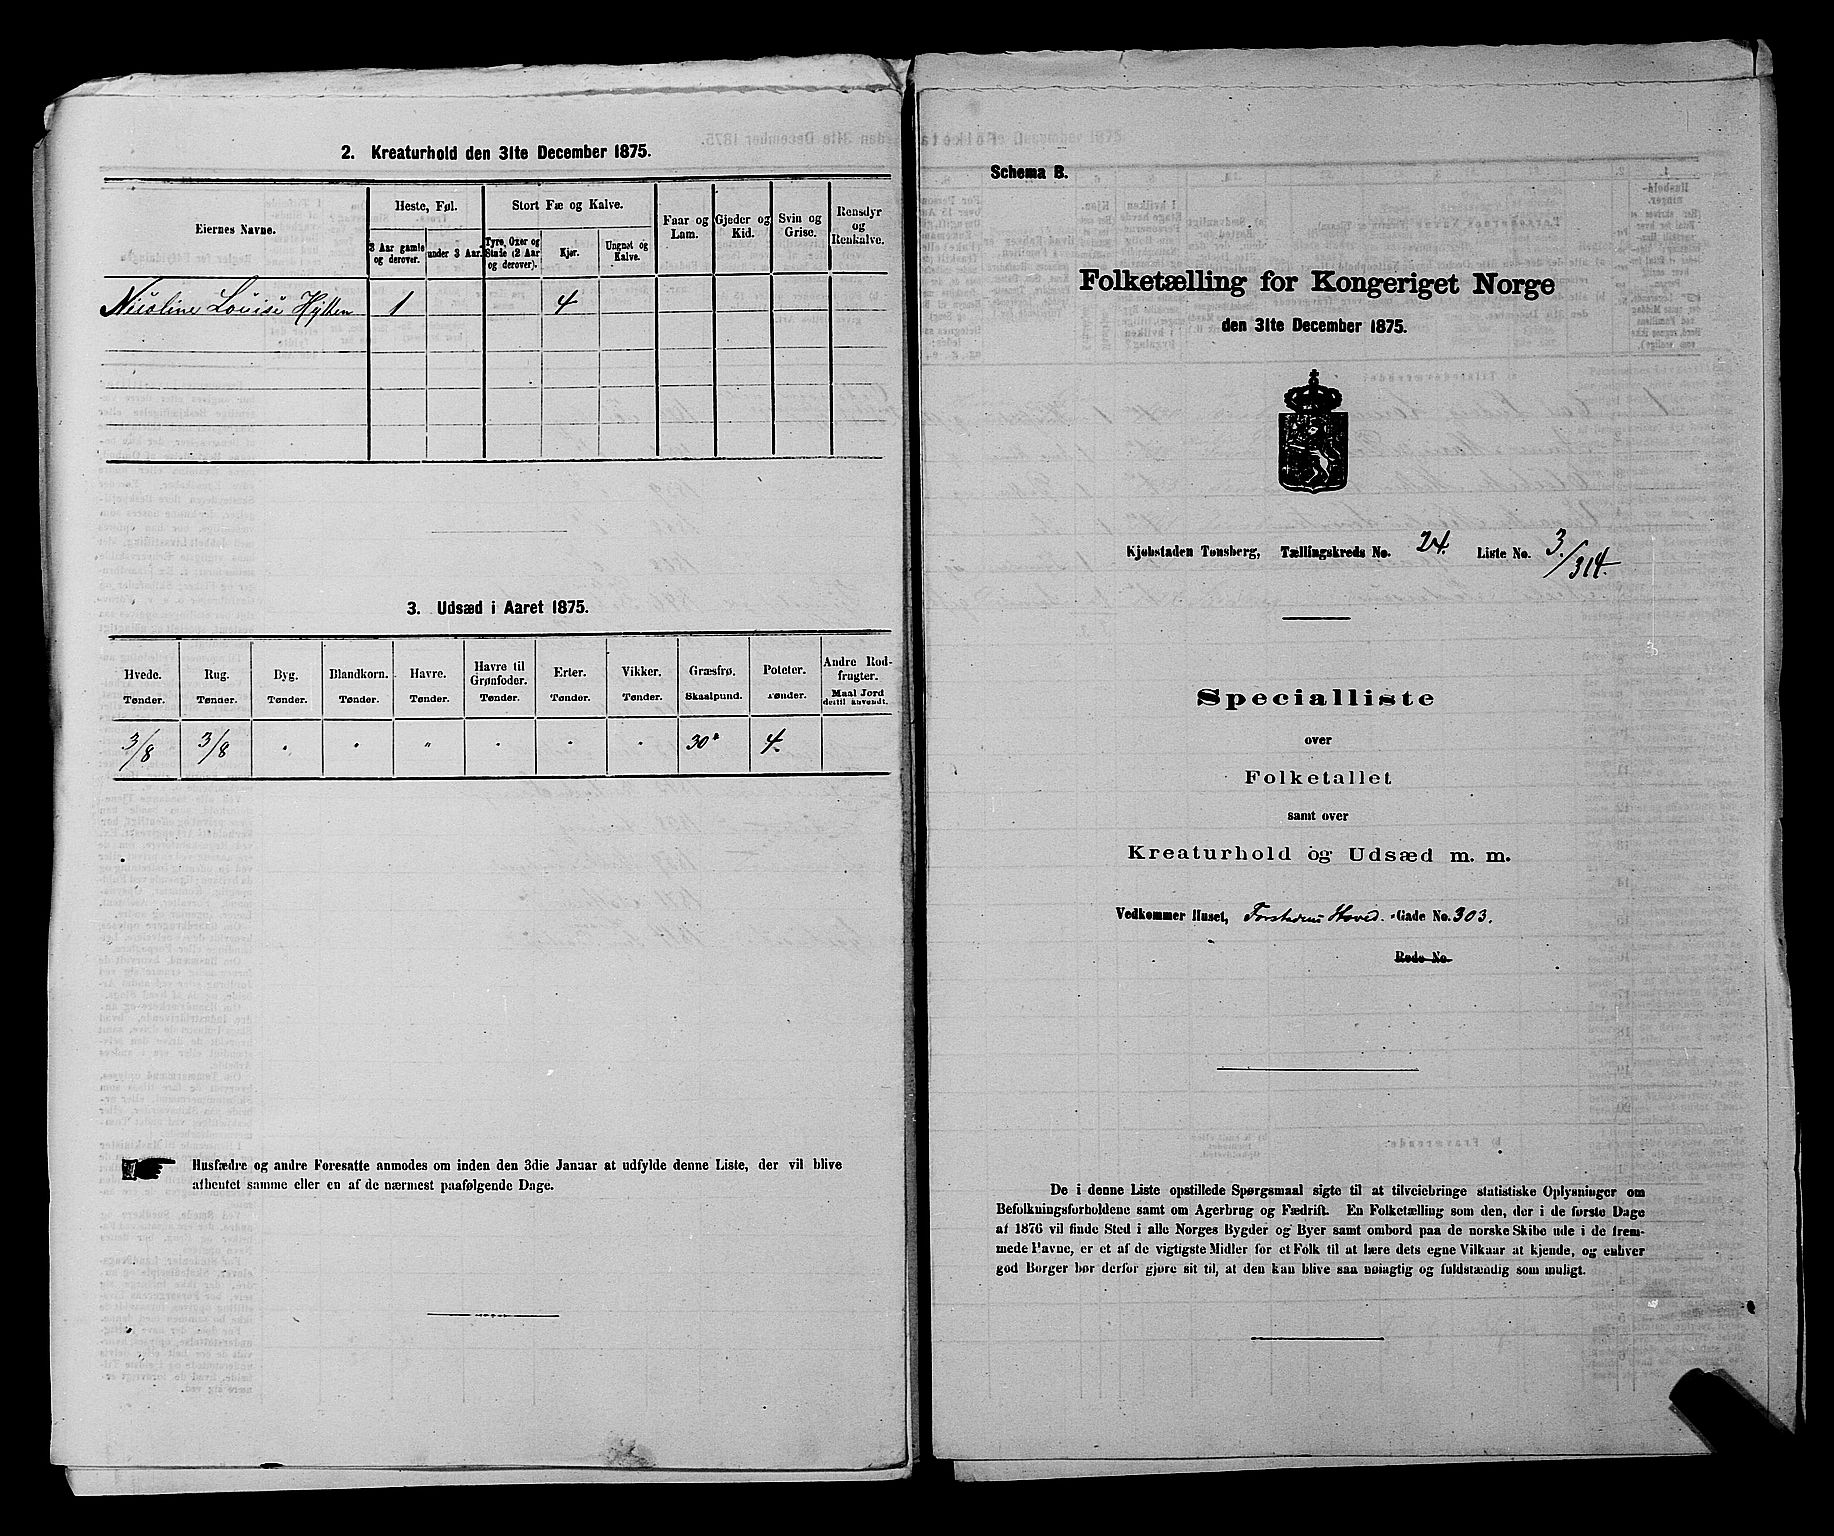 2. Kreaturhold den 31te December 1875.
Eiernes Navne.
Heste, Føl.
Stort Fæ og Kalve.
Faar og Lam.
Gjeder og Kid.
Svin og Grise.
Rensdyr og Renkalve.
3 Aar gamle og derover.
under 3 Aar.
Tyre, Oxer og Stude (2 Aar og derover).
Kjør.
Ungnøt og Kalve.
Nicoline Louise Hytten 1 4
3. Udsæd i Aaret 1875.
Hvede. Rug. Byg. Blandkorn. Havre. Havre til Grønfoder. Erter. Vikker. Græsfrø. Poteter. Andre Rodfrugter.
Tønder. Tønder. Tønder. Tønder. Tønder. Tønder. Tønder. Tønder. Skaalpund. Tønder. Maal Jord dertil anvendt.
3/8 3/8 " " " " " " 30 4.
Husfædre og andre Foresatte anmodes om inden den 3die Januar at udfylde denne Liste, der vil blive
afhentet samme eller en af de nærmest paafølgende Dage.
Schema B.
Folketælling for Kongeriget Norge
den 31te December 1875.
Kjøbstaden Tønsberg, Tællingskreds No. 24. Liste No. 3./314.
Specialliste
over
Folketallet
samt over
Kreaturhold og Udsæd m. m.
Vedkommer Huset, Forstadens Hoved-Gade No. 303.
Rode No.
De i denne Liste opstillede Spørgsmaal sigte til at tilveiebringe statistiske Oplysninger om
Befolkningsforholdene samt om Agerbrug og Fædrift. En Folketælling som den, der i de første Dage
af 1876 vil finde Sted i alle Norges Bygder og Byer samt ombord paa de norske Skibe ude i de frem-
mede Havne, er et af de vigtigste Midler for et Folk til at lære dets egne Vilkaar at kjende, og enhver
god Borger bør derfor gjøre sit til, at den kan blive saa nøiagtig og fuldstændig som muligt.